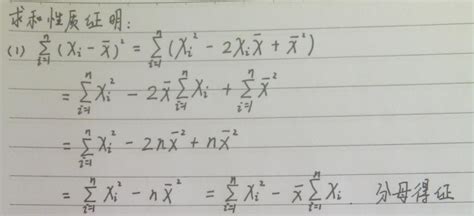 求和性质证明:
(1) \sum_{i=1}^{n} (X_i - \bar{x})^2 = \sum_{i=1}^{n} (X_i^2 - 2X_i\bar{x} + \bar{x}^2)
= \sum_{i=1}^{n} X_i^2 - 2\bar{x} \sum_{i=1}^{n} X_i + \sum_{i=1}^{n} \bar{x}^2
= \sum_{i=1}^{n} X_i^2 - 2n\bar{x}^2 + n\bar{x}^2
= \sum_{i=1}^{n} X_i^2 - n\bar{x}^2 = \sum_{i=1}^{n} X_i^2 - \bar{x} \sum_{i=1}^{n} X_i. 分母得证